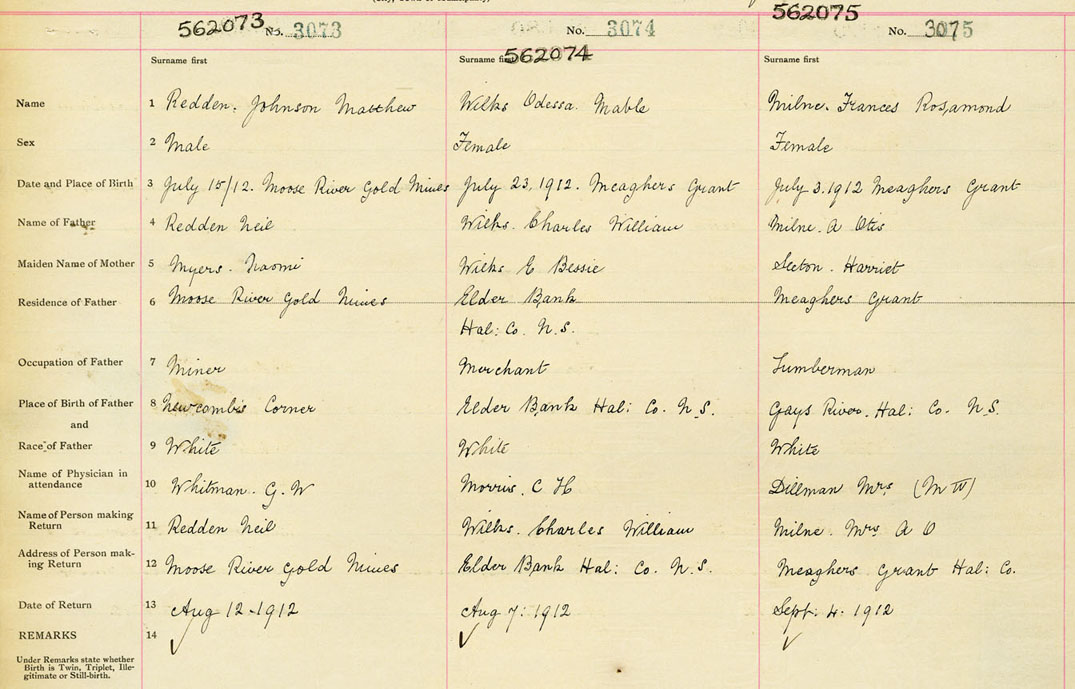 (City, Town or Municipality)
562073 No. 3073
No. 3074
562075
No. 3075
Surname first
Surname first 562074
Surname first
Name 1 Redden. Johnson Matthew
Wilks Odessa. Mable
Milne. Frances Rosamond
Sex 2 Male
Female
Female
Date and Place of Birth 3 July 15/12. Moose River Gold Mines
July 23, 1912. Meaghers Grant
July 3. 1912 Meaghers Grant
Name of Father 4 Redden Neil
Wilks. Charles William
Milne. A Otis
Maiden Name of Mother 5 Myers. Naomi
Wilks E Bessie
Seeton. Harriet
Residence of Father 6 Moose River Gold Mines
Elder Bank
Hal: Co. N.S.
Meaghers Grant
Occupation of Father 7 Miner
Merchant
Lumberman
Place of Birth of Father 8 Newcombs Corner
Elder Bank Hal: Co. N.S.
Gays River. Hal: Co. N.S.
and
Race of Father 9 White
White
White
Name of Physician in
attendance 10 Whitman. G. W
Morris. C H
Dillman Mrs (M W)
Name of Person making
Return 11 Redden Neil
Wilks. Charles William
Milne. Mrs. A O
Address of Person mak-
ing Return 12 Moose River Gold Mines
Elder Bank Hal: Co. N.S.
Meaghers Grant Hal: Co.
Date of Return 13 Aug 12-1912
Aug 7: 1912
Sept. 4. 1912
REMARKS 14
Under Remarks state whether
Birth is Twin, Triplet, Ille-
gitimate or Still-birth.